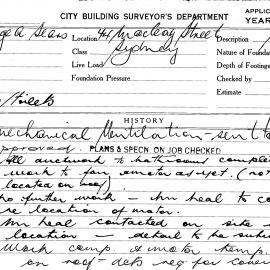 CITY BUILDING SURVEYOR'S DEPARTMENT
APPLIC
YEAR
Location 41 Macleay Street
Class Sydney
Live Load
Foundation Pressure
Description
Nature of Foundation
Depth of Footings
Checked by
Estimate
Streets
HISTORY
Mechanical Ventilation - sent to
approved. PLANS & SPECN. ON JOB CHECKED
All ductwork to bathrooms complete
work to fan & motor as yet. (not
located on roof)
no further work - Mr Neal to
re location of motor.
Mr Neal contacted on site
location - detail to be
Work comp. & motor temp.
on roof - dets req. for cover